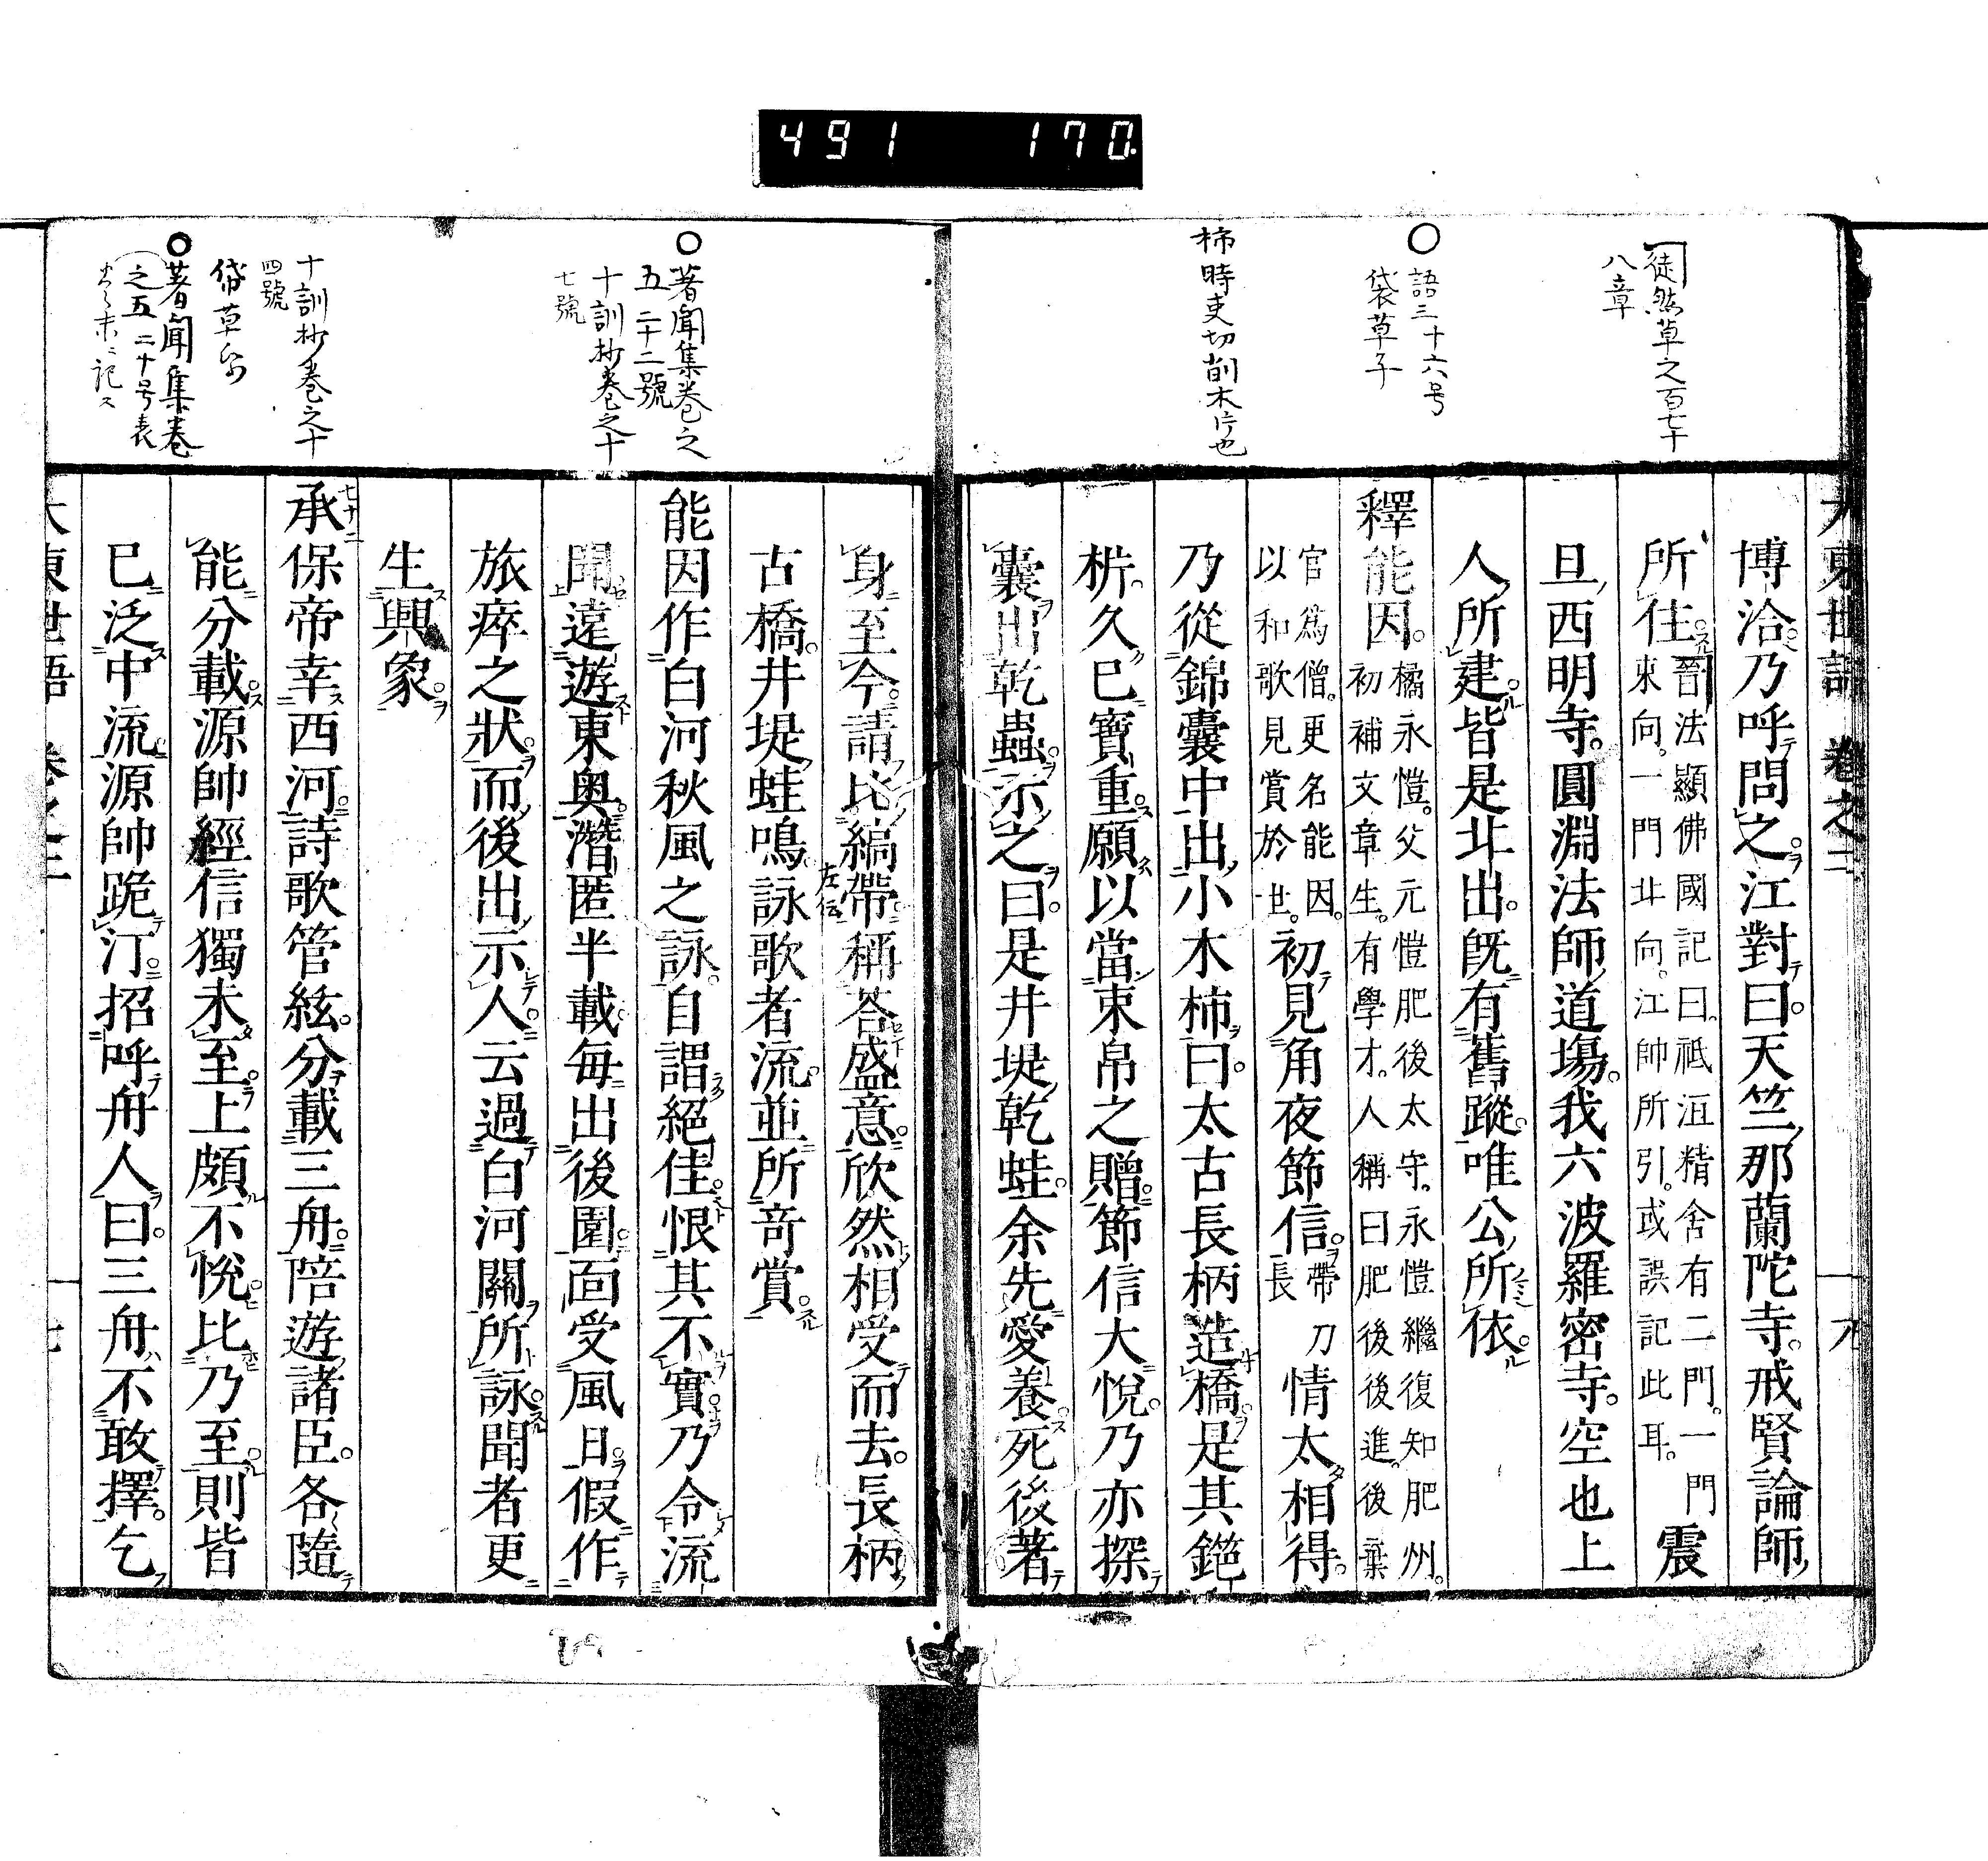 491 170
徒然草之百七十
八章
○語三十六号
袋草子
柿時吏切削木片也
大東世語 卷之二
博洽乃呼問之江對曰天竺那蘭陀寺戒賢論師
所住
晉法顯佛國記曰祗洹精舍有二門一門
東向一門北向江帥所引或誤記此耳
震
旦西明寺圓淵法師道場我六波羅密寺空也上
人所建皆是北出既有舊蹤唯公所依
釋能因
橘永愷父元愷肥後太守永愷繼復知肥州
初補文章生有學才人稱曰肥後後進後棄
官爲僧更名能因
以和歌見賞於世
初見角夜節信
帶刀
長
情太相得
乃從錦囊中出小木柿曰太古長柄造橋是其鎞
㭊久已寶重願以當束帛之贈節信大悅乃亦探
囊出乾蟲示之曰是井堤乾蛙余先愛養死後著
○著聞集卷之
五 二十二號
十訓抄卷之十
七號
十訓抄卷之十
四號
袋草子
○著聞集卷
之五 二十号表
身至今請比縞帶稱荅盛意欣然相受而去長柄
左伝
古橋井堤蛙鳴詠歌者流並所竒賞
能因作白河秋風之詠自謂絕佳恨其不實乃令流
聞遠遊東奥潛匿半載每出後園面受風日假作
旅瘁之狀而後出示人云過白河關所詠聞者更
生興象
七十二
承保帝幸西河詩歌管絃分載三舟陪遊諸臣各隨
能分載源帥經信獨未至上頗不悅比乃至則皆
已泛中流源帥跪汀招呼舟人曰三舟不敢擇乞
大東世語 卷之二